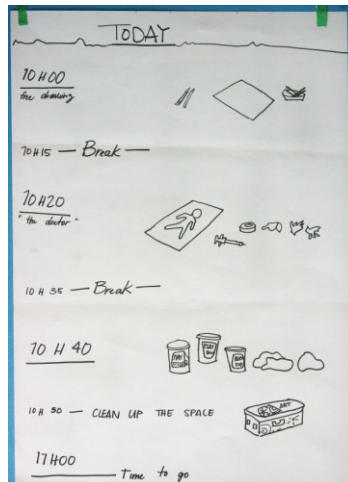 TODAY
10H00
free drawing
10H15 — Break —
10H20
"the doctor"
10H35 — Break —
10H40
10H50 — CLEAN UP THE SPACE
ART
11H00
Time to go